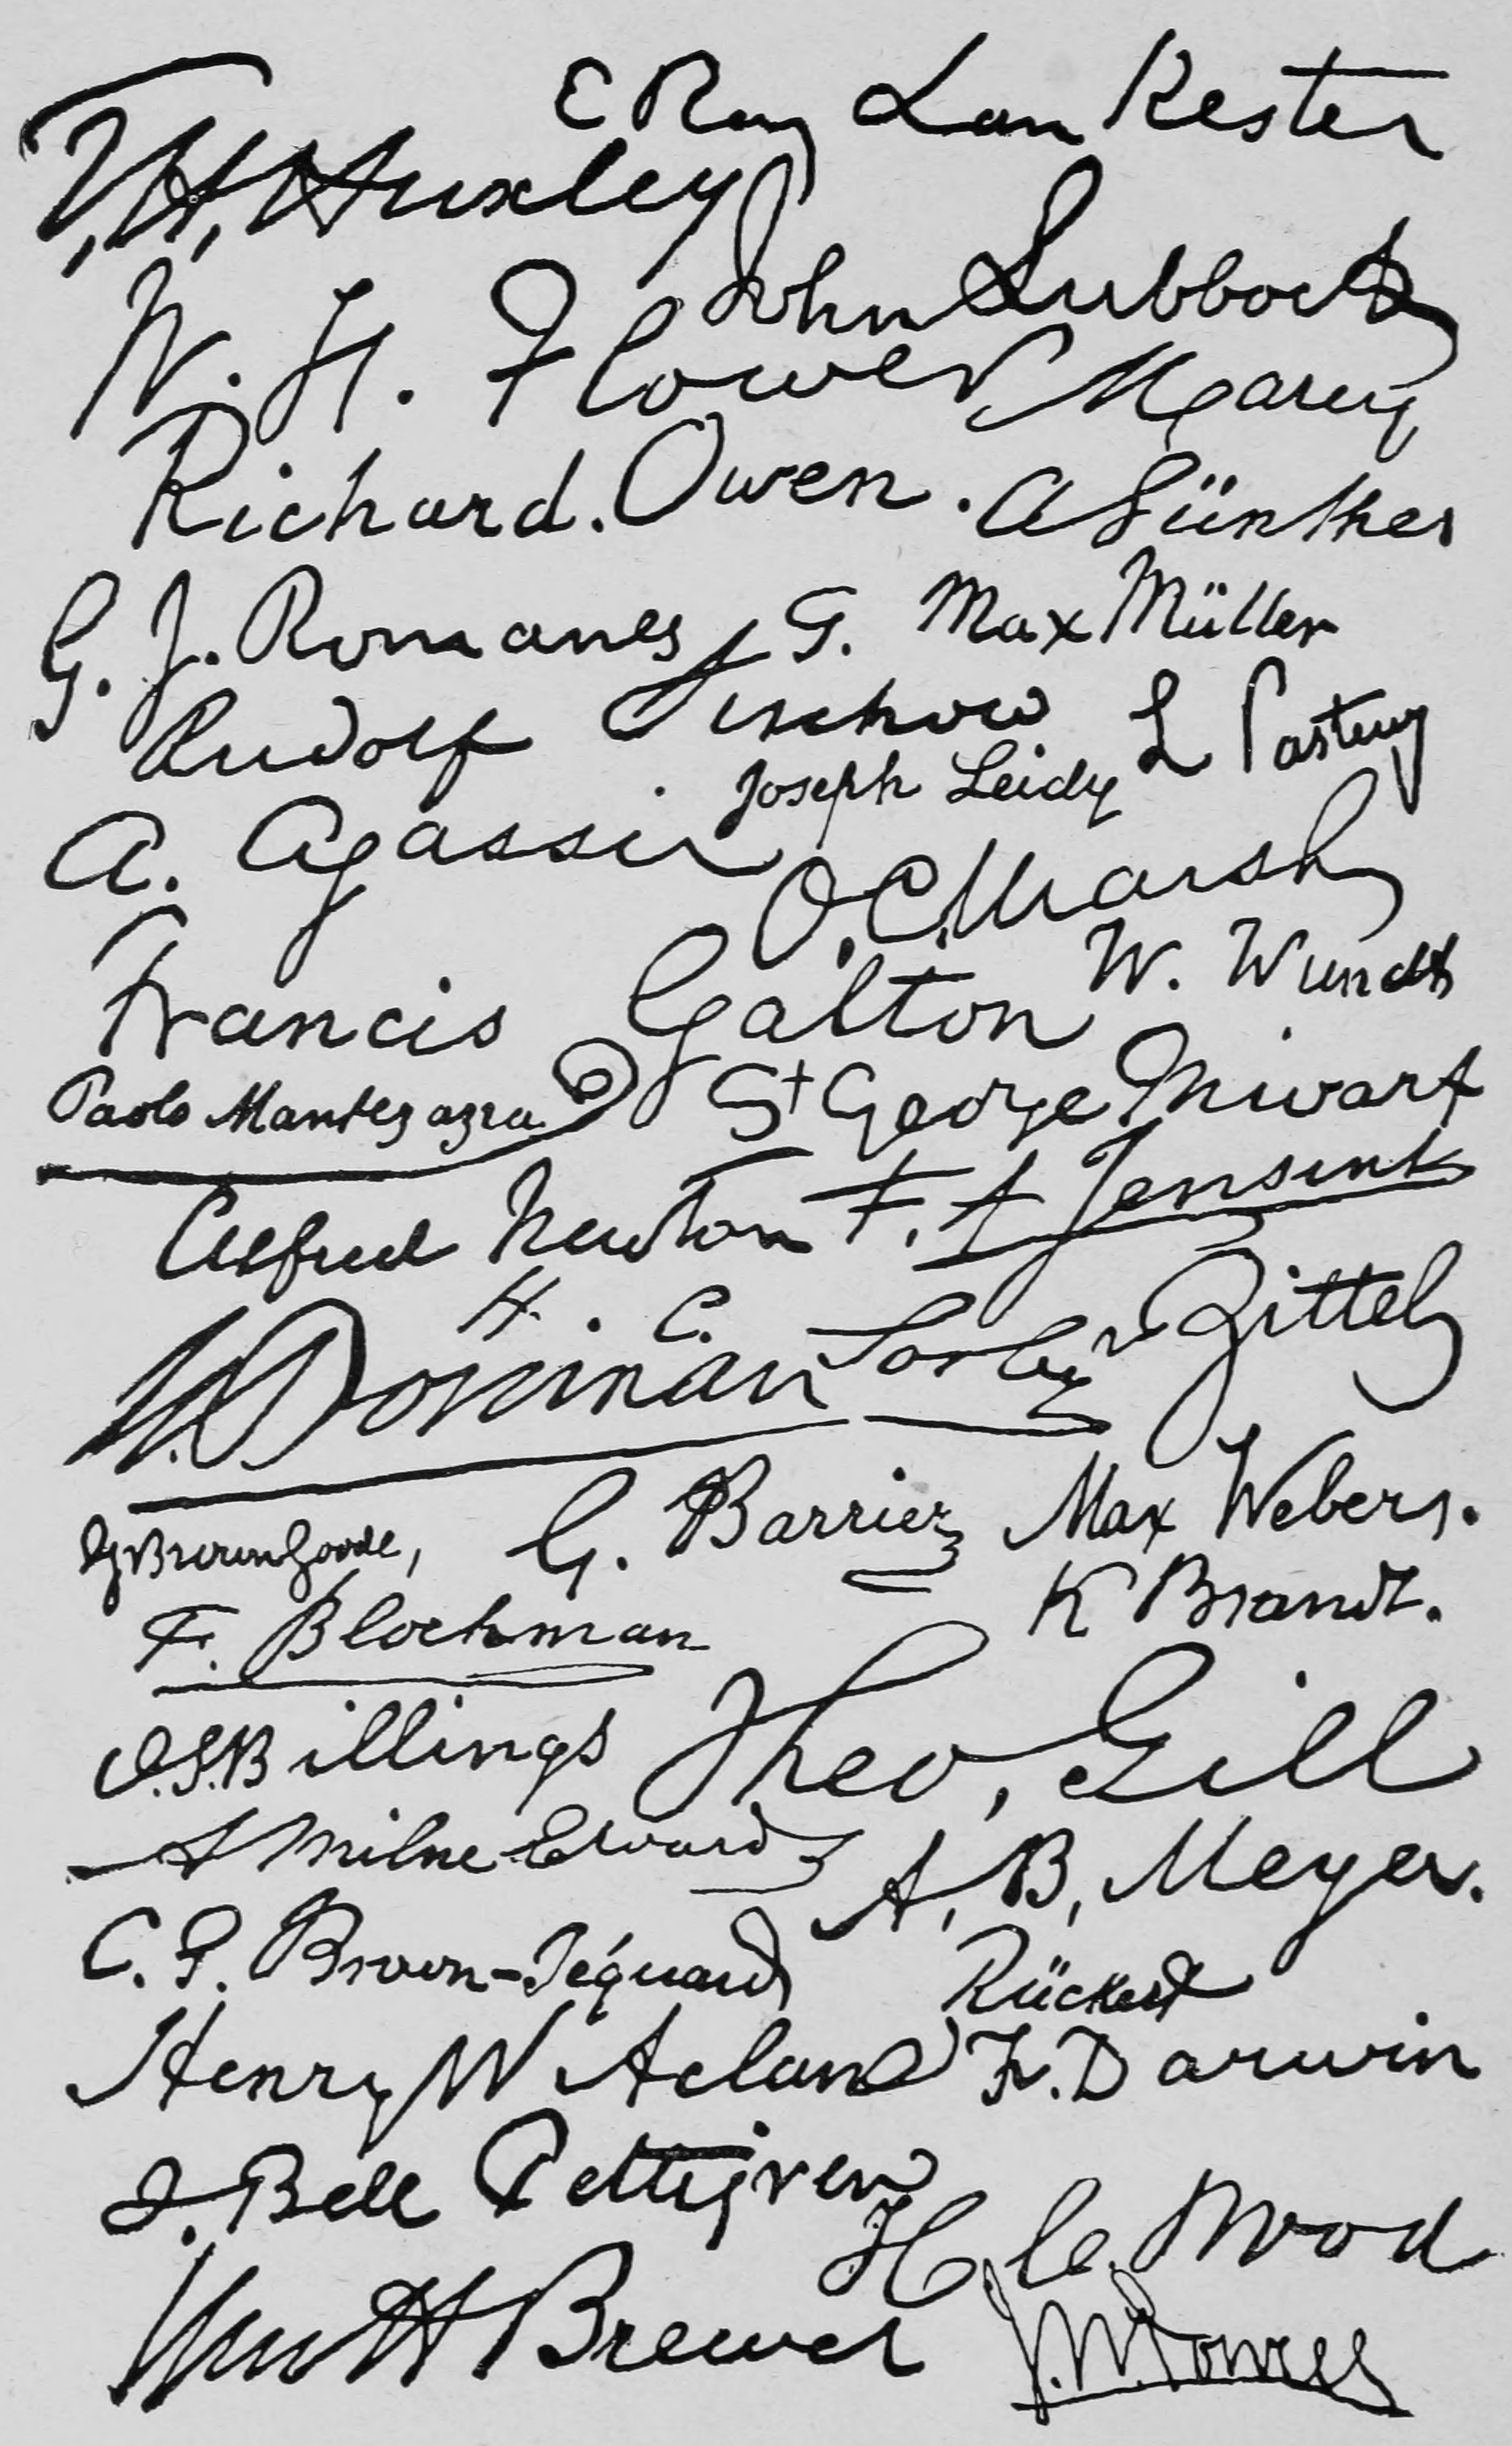 E Ray Lankester
T. H. Huxley
John Lubbock
W. H. Flower
Marey
Richard. Owen.
A Günther
G. J. Romanes
G. Max Müller
Rudolf Virchow
L Pasteur
Joseph Leidy
A. Agassiz
O. C. Marsh
Francis Galton
W. Wundt
Paolo Mantegazza
St George Mivart
Alfred Newton
F. A Jensink
H. C. Sorby
v Zittel
W. Dorman
G Brown Goode,
G. Barrier
Max Webers.
F. Blochman
K Brandt.
J. S. Billings
Theo, Gill
A Milne Edwards
A, B, Meyer.
C. E. Brown-Séquard
Rückert
Henry W Acland
F. Darwin
J. Bell Pettigrew
H. C. Wood
Wm H Brewer